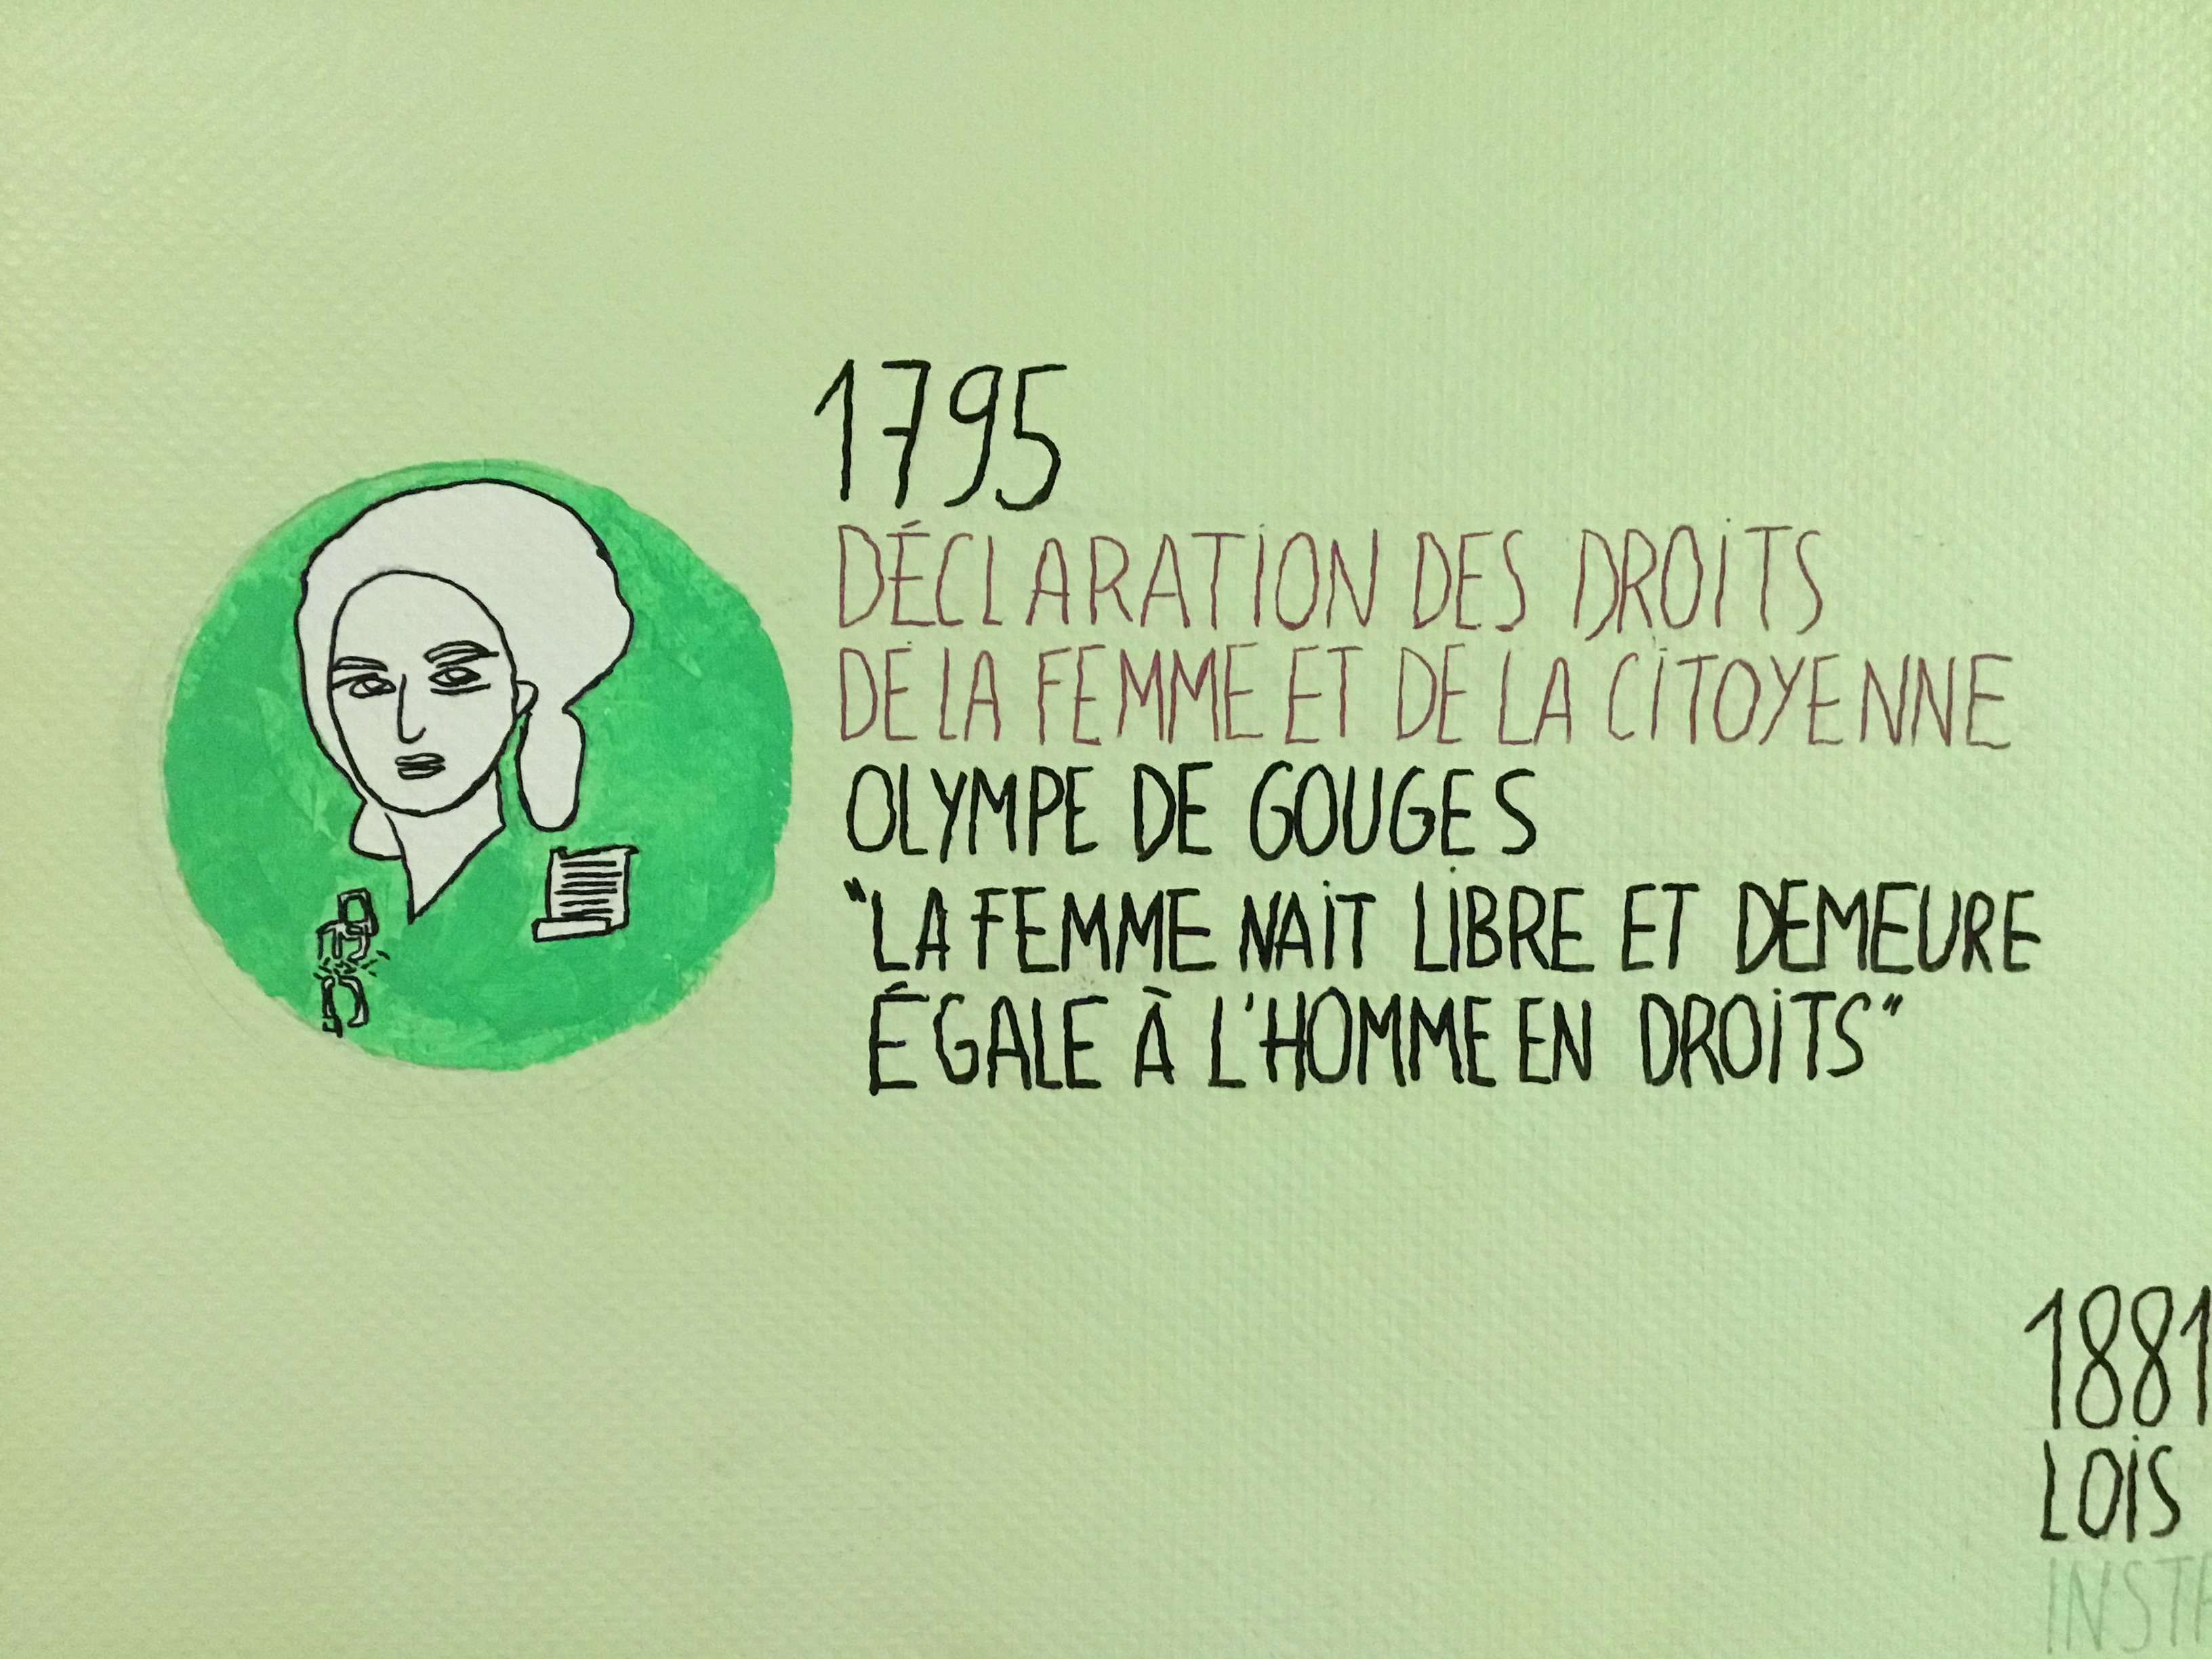 1795
DÉCLARATION DES DROITS
DE LA FEMME ET DE LA CITOYENNE
OLYMPE DE GOUGES
"LA FEMME NAIT LIBRE ET DEMEURE
ÉGALE À L'HOMME EN DROITS"
1881
LOIS